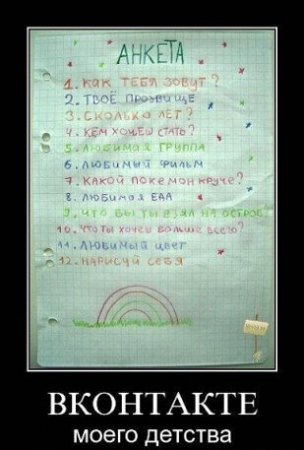 АНКЕТА
1. КАК ТЕБЯ ЗОВУТ?
2. ТВОЁ ПРОЗВИЩЕ
3. СКОЛЬКО ЛЕТ?
4. КЕМ ХОЧЕШ СТАТЬ?
5. ЛЮБИМАЯ ГРУППА
6. ЛЮБИМЫЙ ФИЛЬМ
7. КАКОЙ ПОКЕМОН КРУЧЕ?
8. ЛЮБИМАЯ ЕДА
9. ЧТО БЫ ТЫ ВЗЯЛ НА ОСТРОВ
10. ЧТО ТЫ ХОЧЕШ БОЛЬШЕ ВСЕГО?
11. ЛЮБИМЫЙ ЦВЕТ
12. НАРИСУЙ СЕБЯ
ВКОНТАКТЕ
моего детства